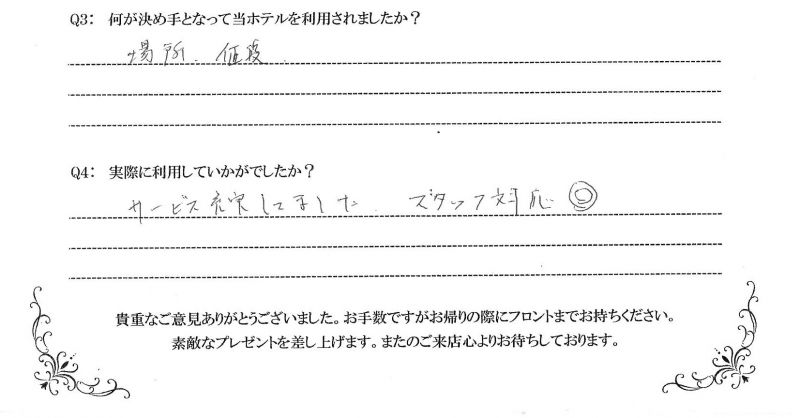 Q3: 何が決め手となって当ホテルを利用されましたか?
場所、値段
Q4: 実際に利用していかがでしたか?
サービス充実してました、スタッフ対応◎
貴重なご意見ありがとうございました。お手数ですがお帰りの際にフロントまでお持ちください。
素敵なプレゼントを差し上げます。またのご来店心よりお待ちしております。